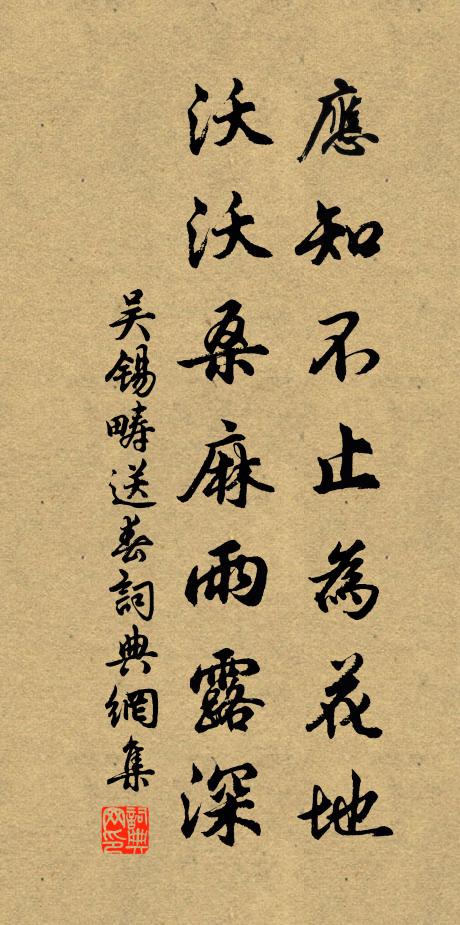 應知不止為花地
沃沃桑麻雨露深
吴錫疇送春詞典網集
詞典網印